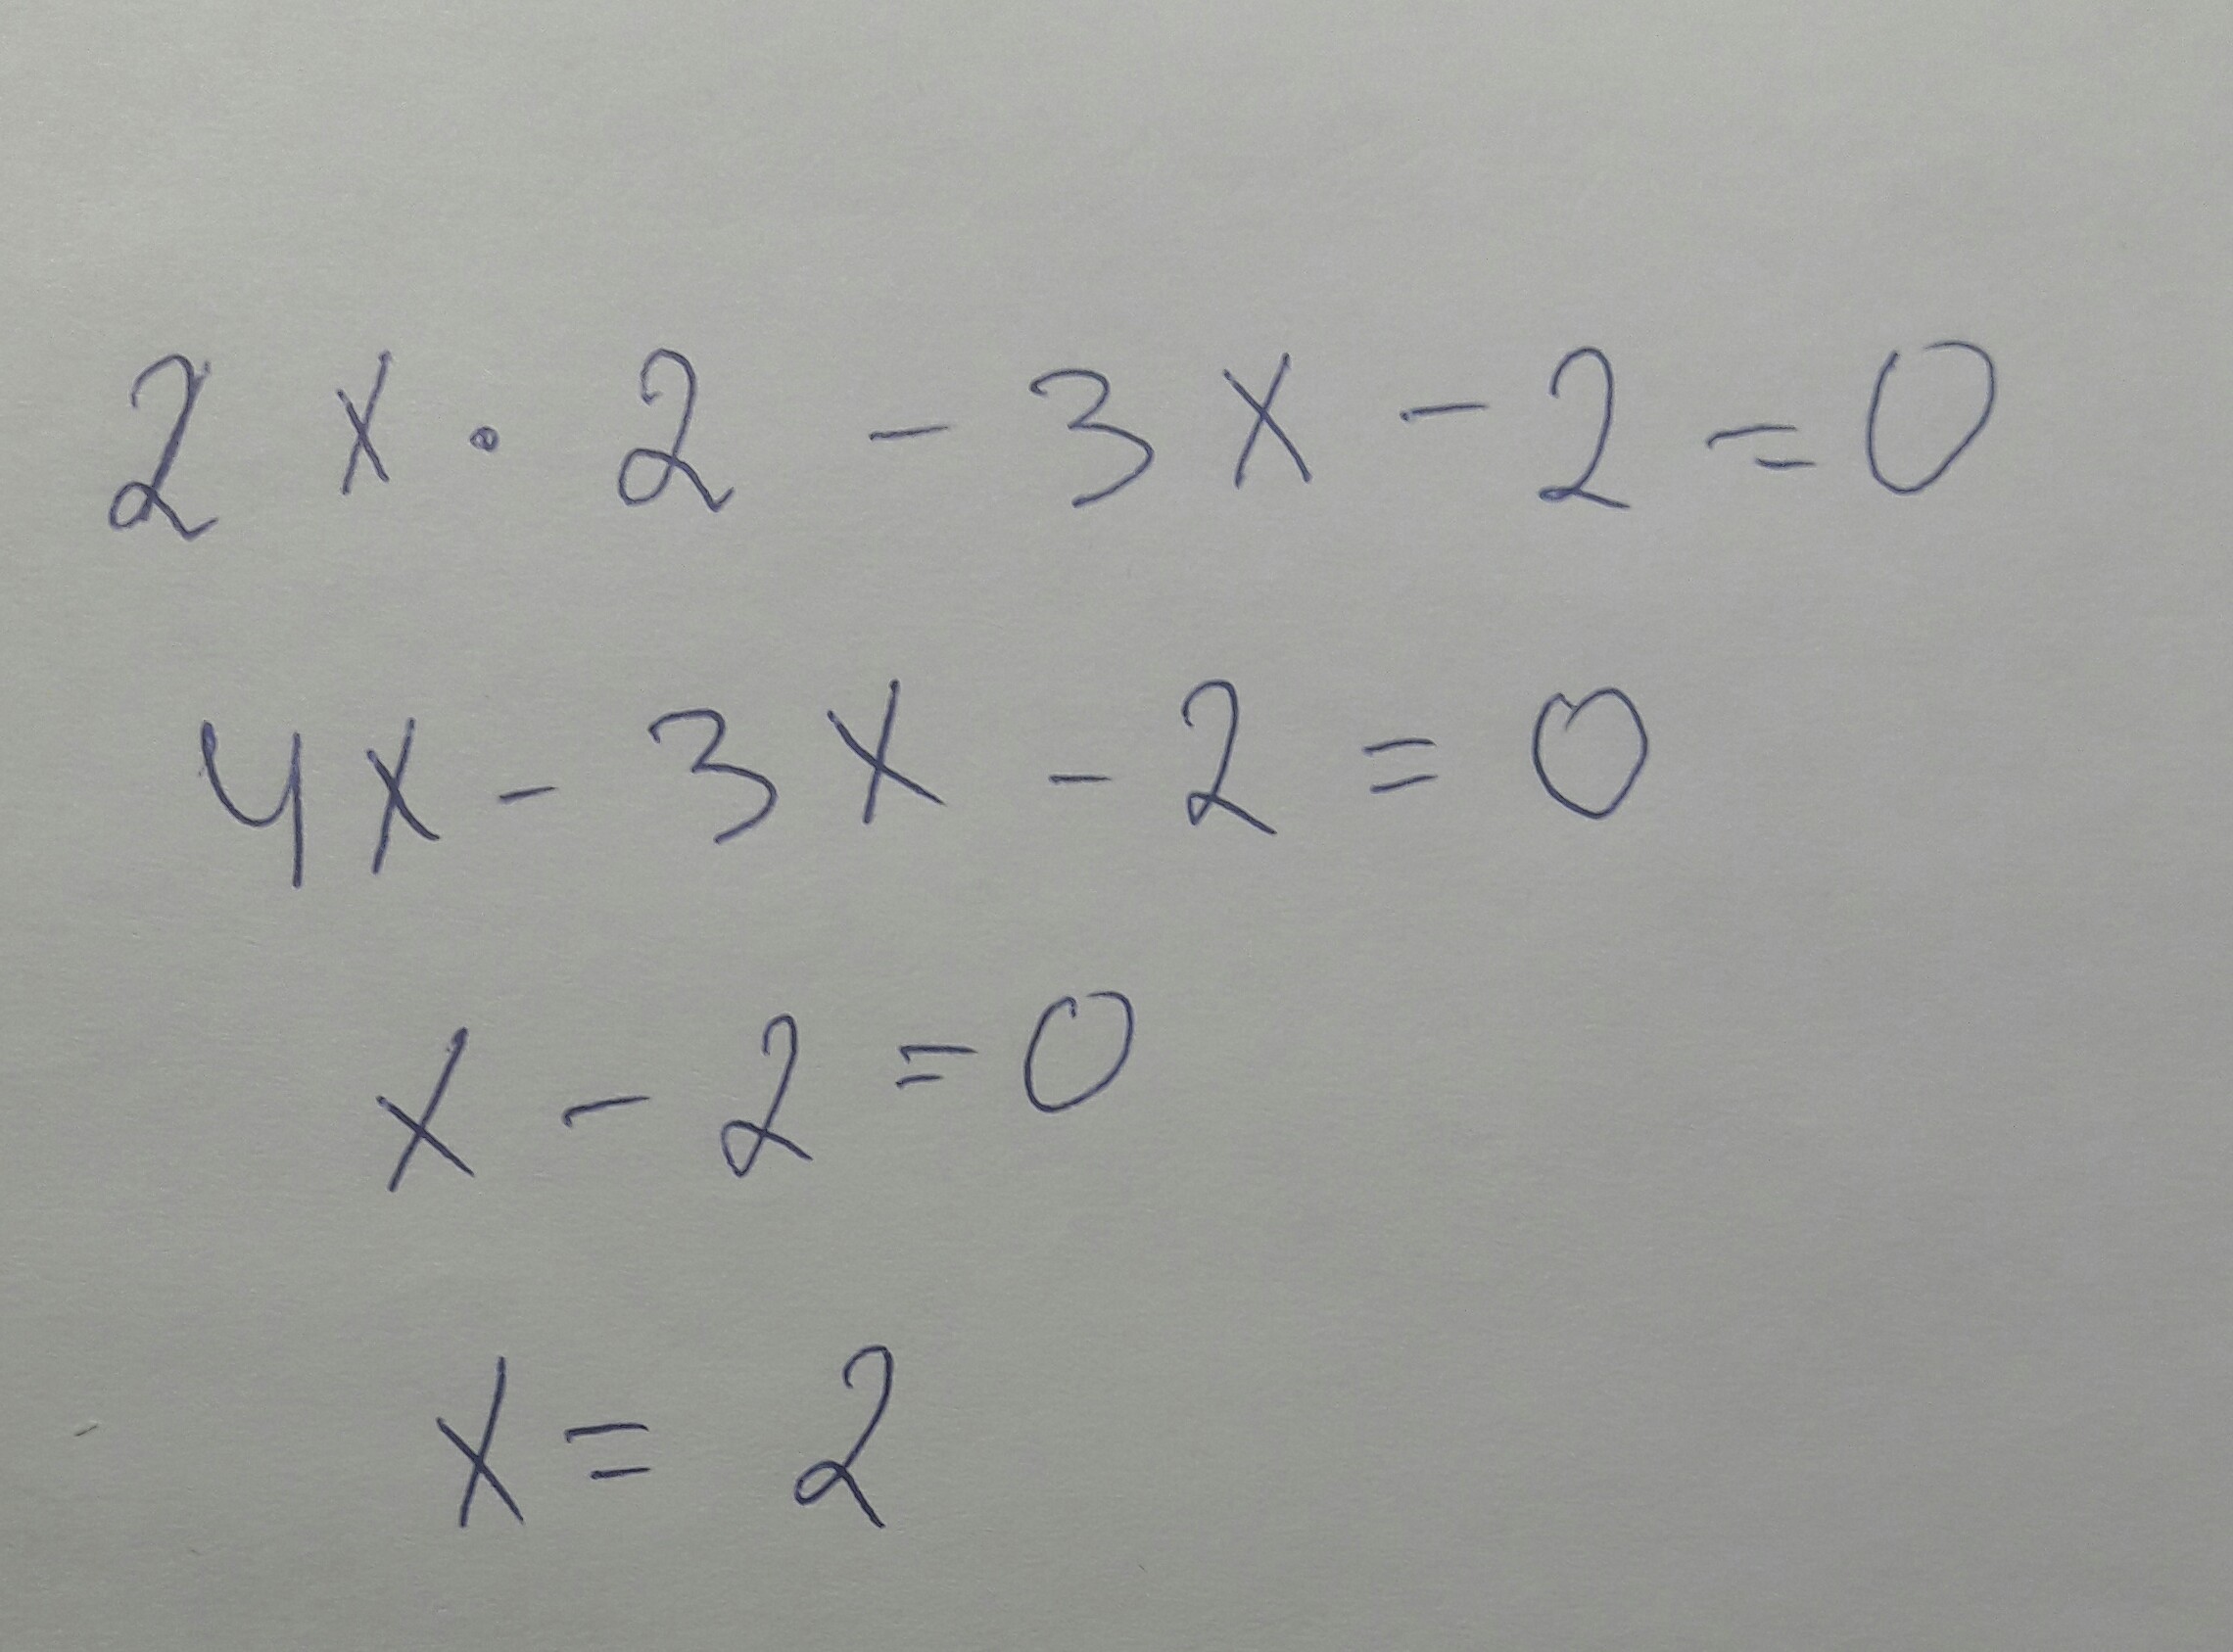 2x · 2 - 3x - 2 = 0
4x - 3x - 2 = 0
x - 2 = 0
x = 2